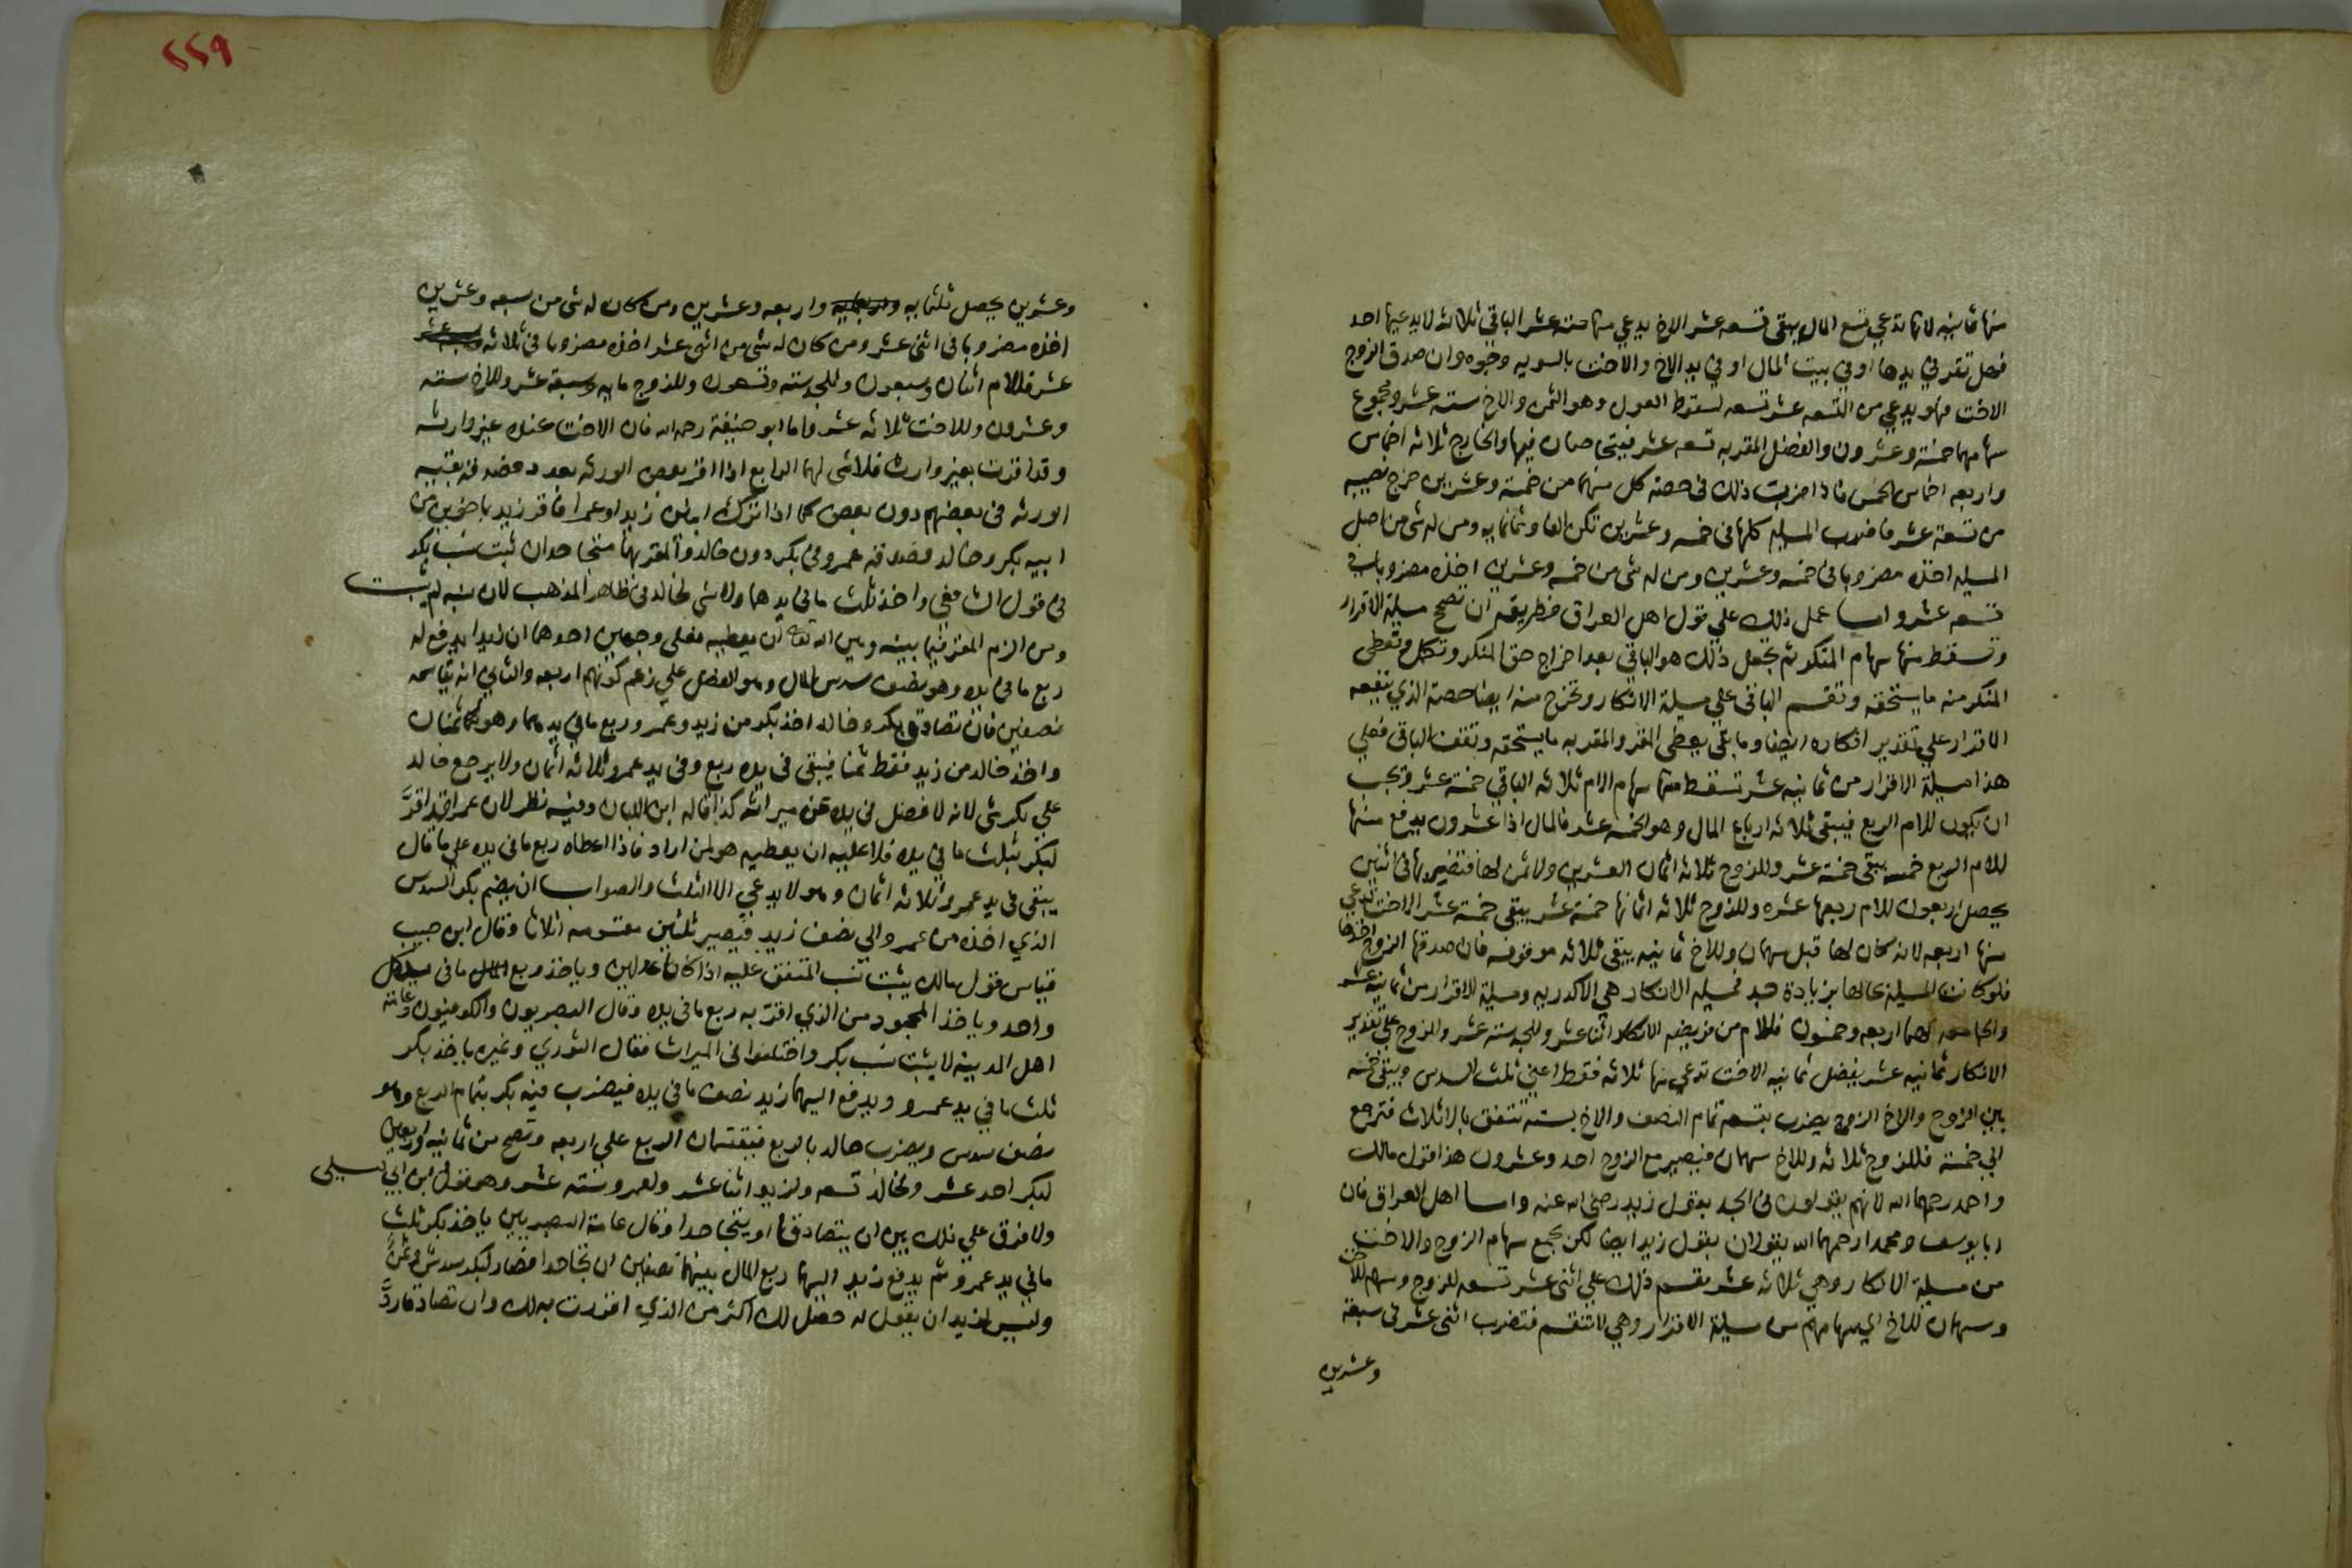 منها ثمانية لانها تدعي تسع المال يبقى تسعه عشر الاخ يدعي منها ستة عشر الباقي ثلاثه لا يدعيها احد
فهل تقر في يدها او في بيت المال او في يد الاخ والاخت بالسويه وجوه وان صدق الزوج
الاخت فهو يدعي من التسعه عشر تسعه لسقوط العول وهو الثمن والاخ سته عشر ومجموع
سهامهما خمسة وعشرون والفضل المقر به تسعه عشر فيتحاصان فيها والخارج ثلاثه اخماس
واربعه اخماس الخمس فاذا ضربت ذلك في حصة كل منهما من خمسة وعشرين خرج نصيبه
من تسعة عشر فاضرب المسيله كلها في خمسه وعشرين تكن الفا وثمانمايه ومن له شى من اصل
المسيله اخذه مضروبا في خمسه وعشرين ومن له شى من خمسه وعشرين اخذه مضروبا في
تسعه عشر واما عمل ذلك علي قول اهل العراق فطريقه ان تصحح مسيلة الاقرار
وتسقط منها سهام المنكر ثم تجعل ذلك هو الباقي بعد اخراج حق المنكر وتكمل وتعطى
المنكر منه ما يستحقه وتقسم الباقى علي مسيلة الانكار وتخرج منه ايضا حصة الذي ينفعه
الاقرار علي تقدير انكاره ايضا وما بقى يعطى المقر والمقر به ما يستحقه وتقف الباقي فعلي
هذا مسيلة الاقرار من ثمانيه عشر تسقط منها سهام الام ثلاثه الباقي خمسة عشر ويجب
ان يكون للام الربع فيبقى ثلاثه ارباع المال وهو الخمسه عشر فالمال اذا عشرون يدفع منها
للام الربع خمسه يبقى خمسة عشر وللزوج ثلاثه اثمان العشرين ولا ثمن لها فتضربها في اثنين
يحصل اربعون للام ربعها عشره وللزوج ثلاثه اثمانها خمسة عشر يبقى خمسة عشر الاخت تدعي
منها اربعه لانه كان لها قبل سهمان وللاخ ثمانيه يبقى ثلاثه موقوفه فان صدقها الزوج اخذها
فلو كانت المسيلة بحالها بزيادة جد فمسيله الانكار هي الاكدريه ومسيلة الاقرار من ثمانيه عشر
والجامعه لهما اربعه وخمسون فللام من فريضه الانكار اثنا عشر وللجد سته عشر والزوج علي تقدير
الانكار ثمانيه عشر يفضل ثمانيه الاخت تدعي منها ثلاثه فقط اعني ثلث السدس ويبقى خمسه
بين الزوج والاخ الزوج يضرب بتسعه تمام النصف والاخ بسته تتفق بالاثلاث فترجع
الي خمسة فللزوج ثلاثه وللاخ سهمان فيصير مع الزوج احد وعشرون هذا قول مالك
واحمد رحمهما الله لانهم يقولون في الجد بقول زيد رضى الله عنه واما اهل العراق فان
ابا يوسف ومحمدا رحمهما الله يقولان بقول زيد ايضا لكن يجمع سهام الزوج والاخت
من مسيلة الانكار وهي ثلاثه عشر يقسم ذلك علي اثنى عشر تسعه للزوج وسهم للاخت
وسهمان للاخ الي سهامهم من مسيلة الاقرار وهي لا تنقسم فتضرب اثنى عشر في سبعة
وعشرين
٢٢٩
وعشرين يحصل ثلثمايه واربعه وعشرين ومن كان له شى من سبعه وعشرين
اخذه مضروبا في اثنى عشر ومن كان له شى من اثنى عشر اخذه مضروبا في ثلاثه
عشر فللام اثنان وسبعون وللجد سته وتسعون وللزوج مايه وسبعة عشر وللاخ سته
وعشرون وللاخت ثلاثه عشر واما ابو حنيفة رحمه الله فان الاخت عنده غير وارثه
وقد اقرت بغير وارث فلا شى لهما الرابع اذا اقر بعض الورثه بعدد فصدقه بقية
الورثه في بعضهم دون بعض كما اذا ترك ابنين زيدا وعمرا فاقر زيد باخوين من
ابيه بكر وخالد فصدقه عمرو في بكر دون خالد والمقر بهما متجاحدان ثبت نسب بكر
في قول الشافعي واخذ ثلث ما في يدهما ولا شى لخالد في ظاهر المذهب لان نسبه لم يثبت
ومن الزم المقر فيما بينه وبين الله تعالى ان يعطيه فعلى وجهين احدهما ان زيدا يدفع له
ربع ما في يده وهو نصف سدس المال وهو الفضل علي زعم كونهم اربعه والثاني انه يقاسمه
نصفين فان تصادق بكر وخالد اخذ بكر من زيد وعمرو ربع ما في يدهما وهو ثمنان
واخذ خالد من زيد فقط ثمنا فيبقى في يده ربع وفي يد عمرو ثلاثه اثمان ولا يرجع خالد
علي بكر بشى لانه لا فضل في يده عن ميراثه كذا قاله ابن اللبان وفيه نظر لان عمرا قد اقرَّ
لبكر بثلث ما في يده فلا عليه ان يعطيه هو لمن اراد فاذا اعطاه ربع ما في يده علي ما قال
يبقى في يد عمرو ثلاثه اثمان وهو لا يدعي الا الثلث والصواب ان يضم بكر السدس
الذي اخذه من عمرو الي نصف زيد فيصير ثلثين مقسومه اثلاثا وقال ابن حبيب
قياس قول مالك يثبت نسب المتفق عليه اذا كانا عدلين وياخذ ربع ما في يد كل
واحد وياخذ المجحود من الذي اقرّ به ربع ما في يده وقال البصريون والكوفيون وعامة
اهل المدينة لا يثبت نسب بكر واختلفوا في الميراث فقال الثوري وغيره ياخذ بكر
ثلث ما في يد عمرو ويدفع اليهما زيد نصف ما في يده فيضرب فيه بكر بتمام الربع وهو
نصف سدس ويضرب خالد بالربع فيقتسمان الربع علي اربعه وتصح من ثمانيه واربعين
لبكر احد عشر ولخالد تسعه ولزيد اثنا عشر ولعمرو سته عشر وهو قول ابن ابي ليلى
ولا فرق علي ذلك بين ان يتصادقا او يتجاحدا وقال عامة البصريين ياخذ بكر ثلث
ما في يد عمرو ثم يدفع زيد اليهما ربع المال بينهما نصفين ان تجاحدا فصار لبكر سدس وثمنٌ
وليس لزيد ان يقول له حصل لك اكثر من الذي اقررت به لك وان تصادقا ردَّ